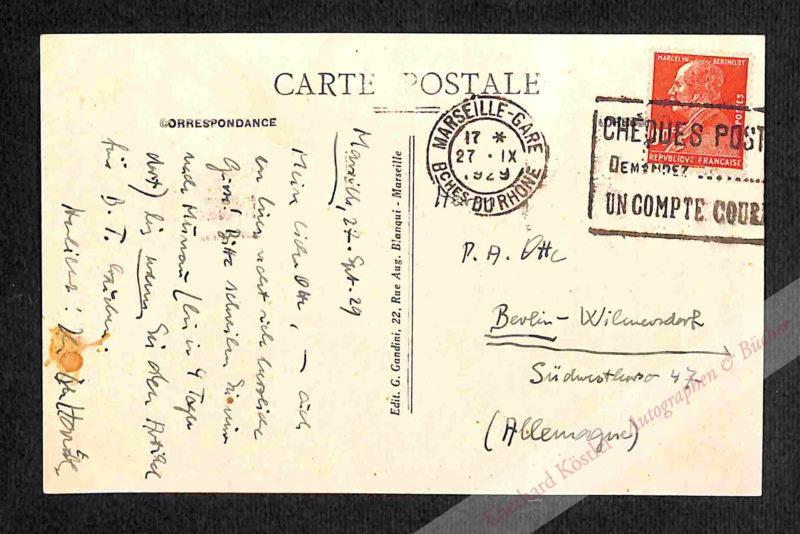 CARTE POSTALE
CORRESPONDANCE
MARCELIN BERTHELOT
POSTES
REPVBLIQVE FRANÇAISE
MARSEILLE-GARE
17 *
27 · IX
1929
BCHES DU RHÔNE
CHÈQUES POST
DEMANDEZ
UN COMPTE COUR
Edit. G. Gandini, 22, Rue Aug. Blanqui - Marseille
Marseille, 27. Spt. 29
Mein lieber Otte, — auch
Ihnen recht herzliche
Grüsse! Bitte schreiben Sie mir
nach Murnau (bin in 4 Tagen
dort) bis wann Sie den Artikel
fürs B. T.
Herzlichst:
Herrn
P. A. Otte
Berlin - Wilmersdorf
Südwestkorso 47
(Allemagne)
Eberhard Köstler Autographen & Bücher